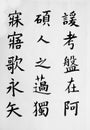 諼考盤在阿
碩人之薖獨
寐寤歌永矢